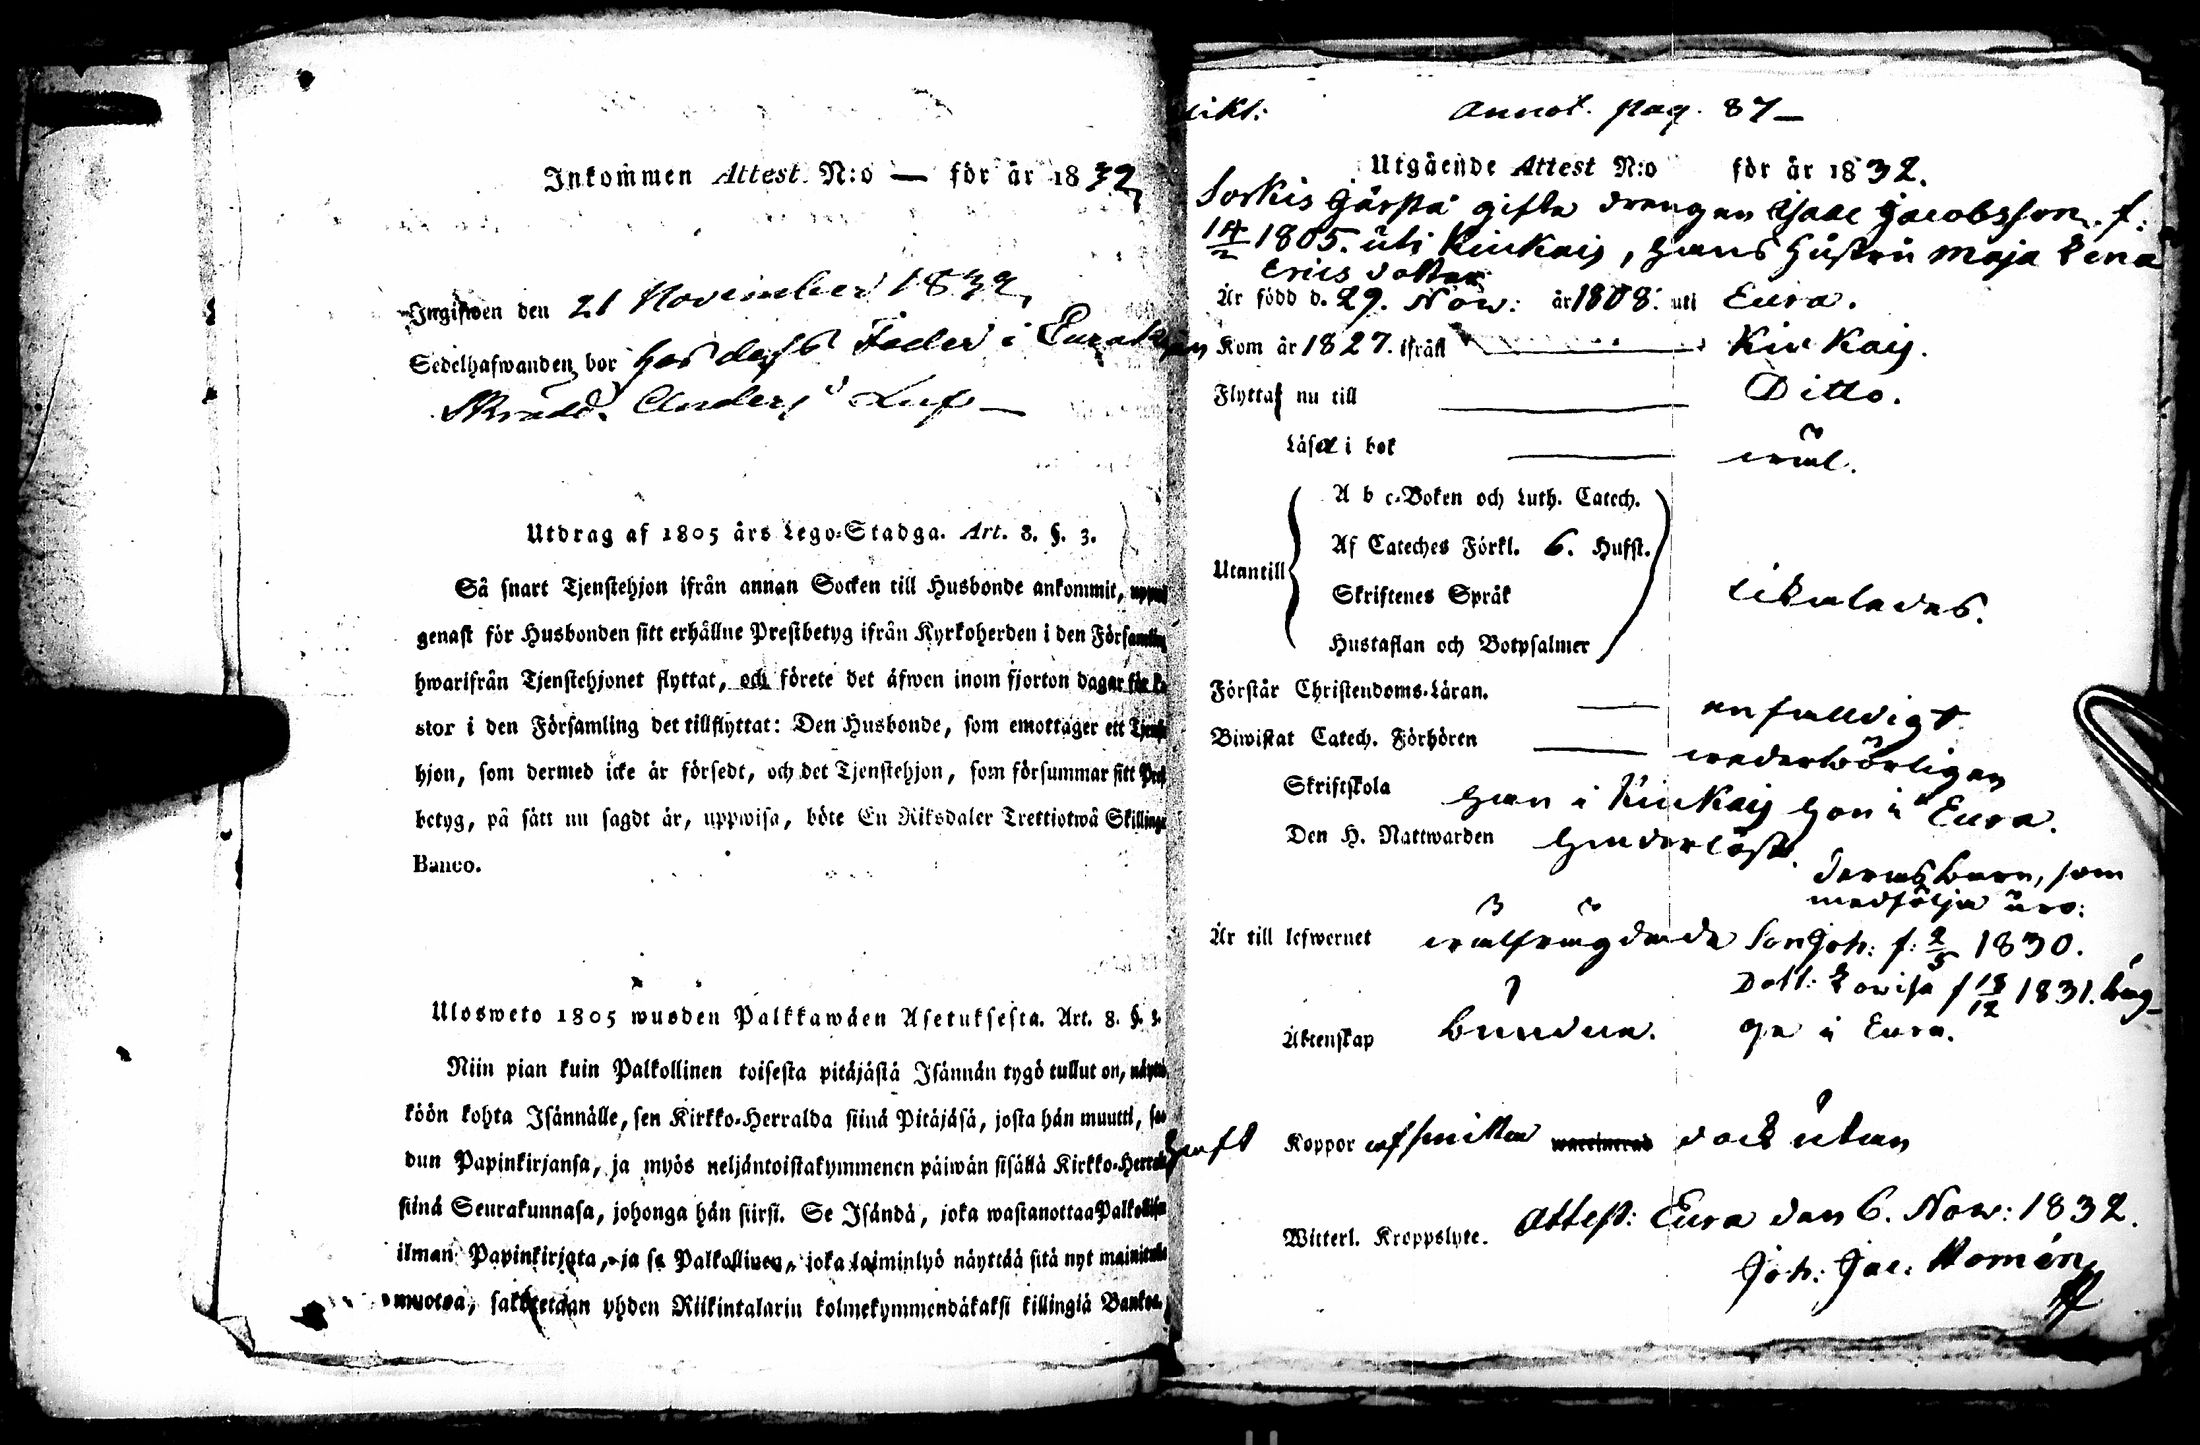 Inkommen Attest. N:o — för år 1832,
Ingifwen den 21 November 1832,
Sedelhafwanden bor hos dess Fader i
Skrädd. Anders
Utdrag af 1805 års Lego-Stadga. Art. 8. §. 3.
Så snart Tjenstehjon ifrån annan Socken till Husbonde ankommit,
genast för Husbonden sitt erhållne Prestbetyg ifrån Kyrkoherden i den Församling
hwarifrån Tjenstehjonet flyttat, och förete det äfwen inom fjorton dagar för
stor i den Församling det tillflyttat: Den Husbonde, som emottager ett Tjenste
hjon, som dermed icke är försedt, och det Tjenstehjon, som försummar sitt Prest
betyg, på sätt nu sagdt är, uppwisa, böte En Riksdaler Trettiotwå Skillinge
Banco.
Ulosweto 1805 wuoden Palkkawäen Asetuksesta. Art. 8. §. 3.
Niin pian kuin Palkollinen toisesta pitäjästä Isännän tygö tullut on, näyttä
köön kohta Isännälle, sen Kirkko-Herralda siinä Pitäjäsä, josta hän muutti, saa
dun Papinkirjansa, ja myös neljäntoistakymmenen päiwän sisällä Kirkko-Herralle
siinä Seurakunnasa, johonga hän siirsi. Se Isändä, joka wastanottaa Palkollisen
ilman Papinkirjata, ja se Palkollinen, joka laiminlyö näyttää sitä nyt mainitulla
muotoa, sakotetaan yhden Riikintalarin kolmekymmendäkaksi killingiä Bankoa.
Annot. pag. 87—
Utgående Attest N:o för år 1832.
Sorkis Gärstå gifta drengen Isaac Jacobsson. f.
14/2 1805. uti Kiukais, hans hustru Maja Lena
Erics dotter
Är född d. 29. Nov: år 1808. uti Eura.
Kom år 1827. ifrån — Kiukais.
Flyttas nu till — Ditto.
Läser i bok — wäl.
Utantill
A b c-Boken och Luth. Catech.
Af Cateches Förkl. 6. Hufst.
Skriftenes Språk
Hustaflan och Botpsalmer
likaledes.
Förstår Christendoms-Läran. — enfaldigt
Biwistat Catech. Förhören — wederbörligen
Skriftskola Han i Kiukais hon i Eura.
Den H. Nattwarden hinderlöst.
deras barn, som
medfölja äro:
Är till lefwernet wälfrägdade Son Joh: f: 2/5 1830.
Dott: Lovisa f 18/12 1831. bäg-
Äktenskap bundna. ge i Eura.
haft Koppor afsmittan waccinerad dock utan
Witterl. Kroppslyte. Attest: Eura den 6. Nov: 1832.
Joh: Jac: Homén